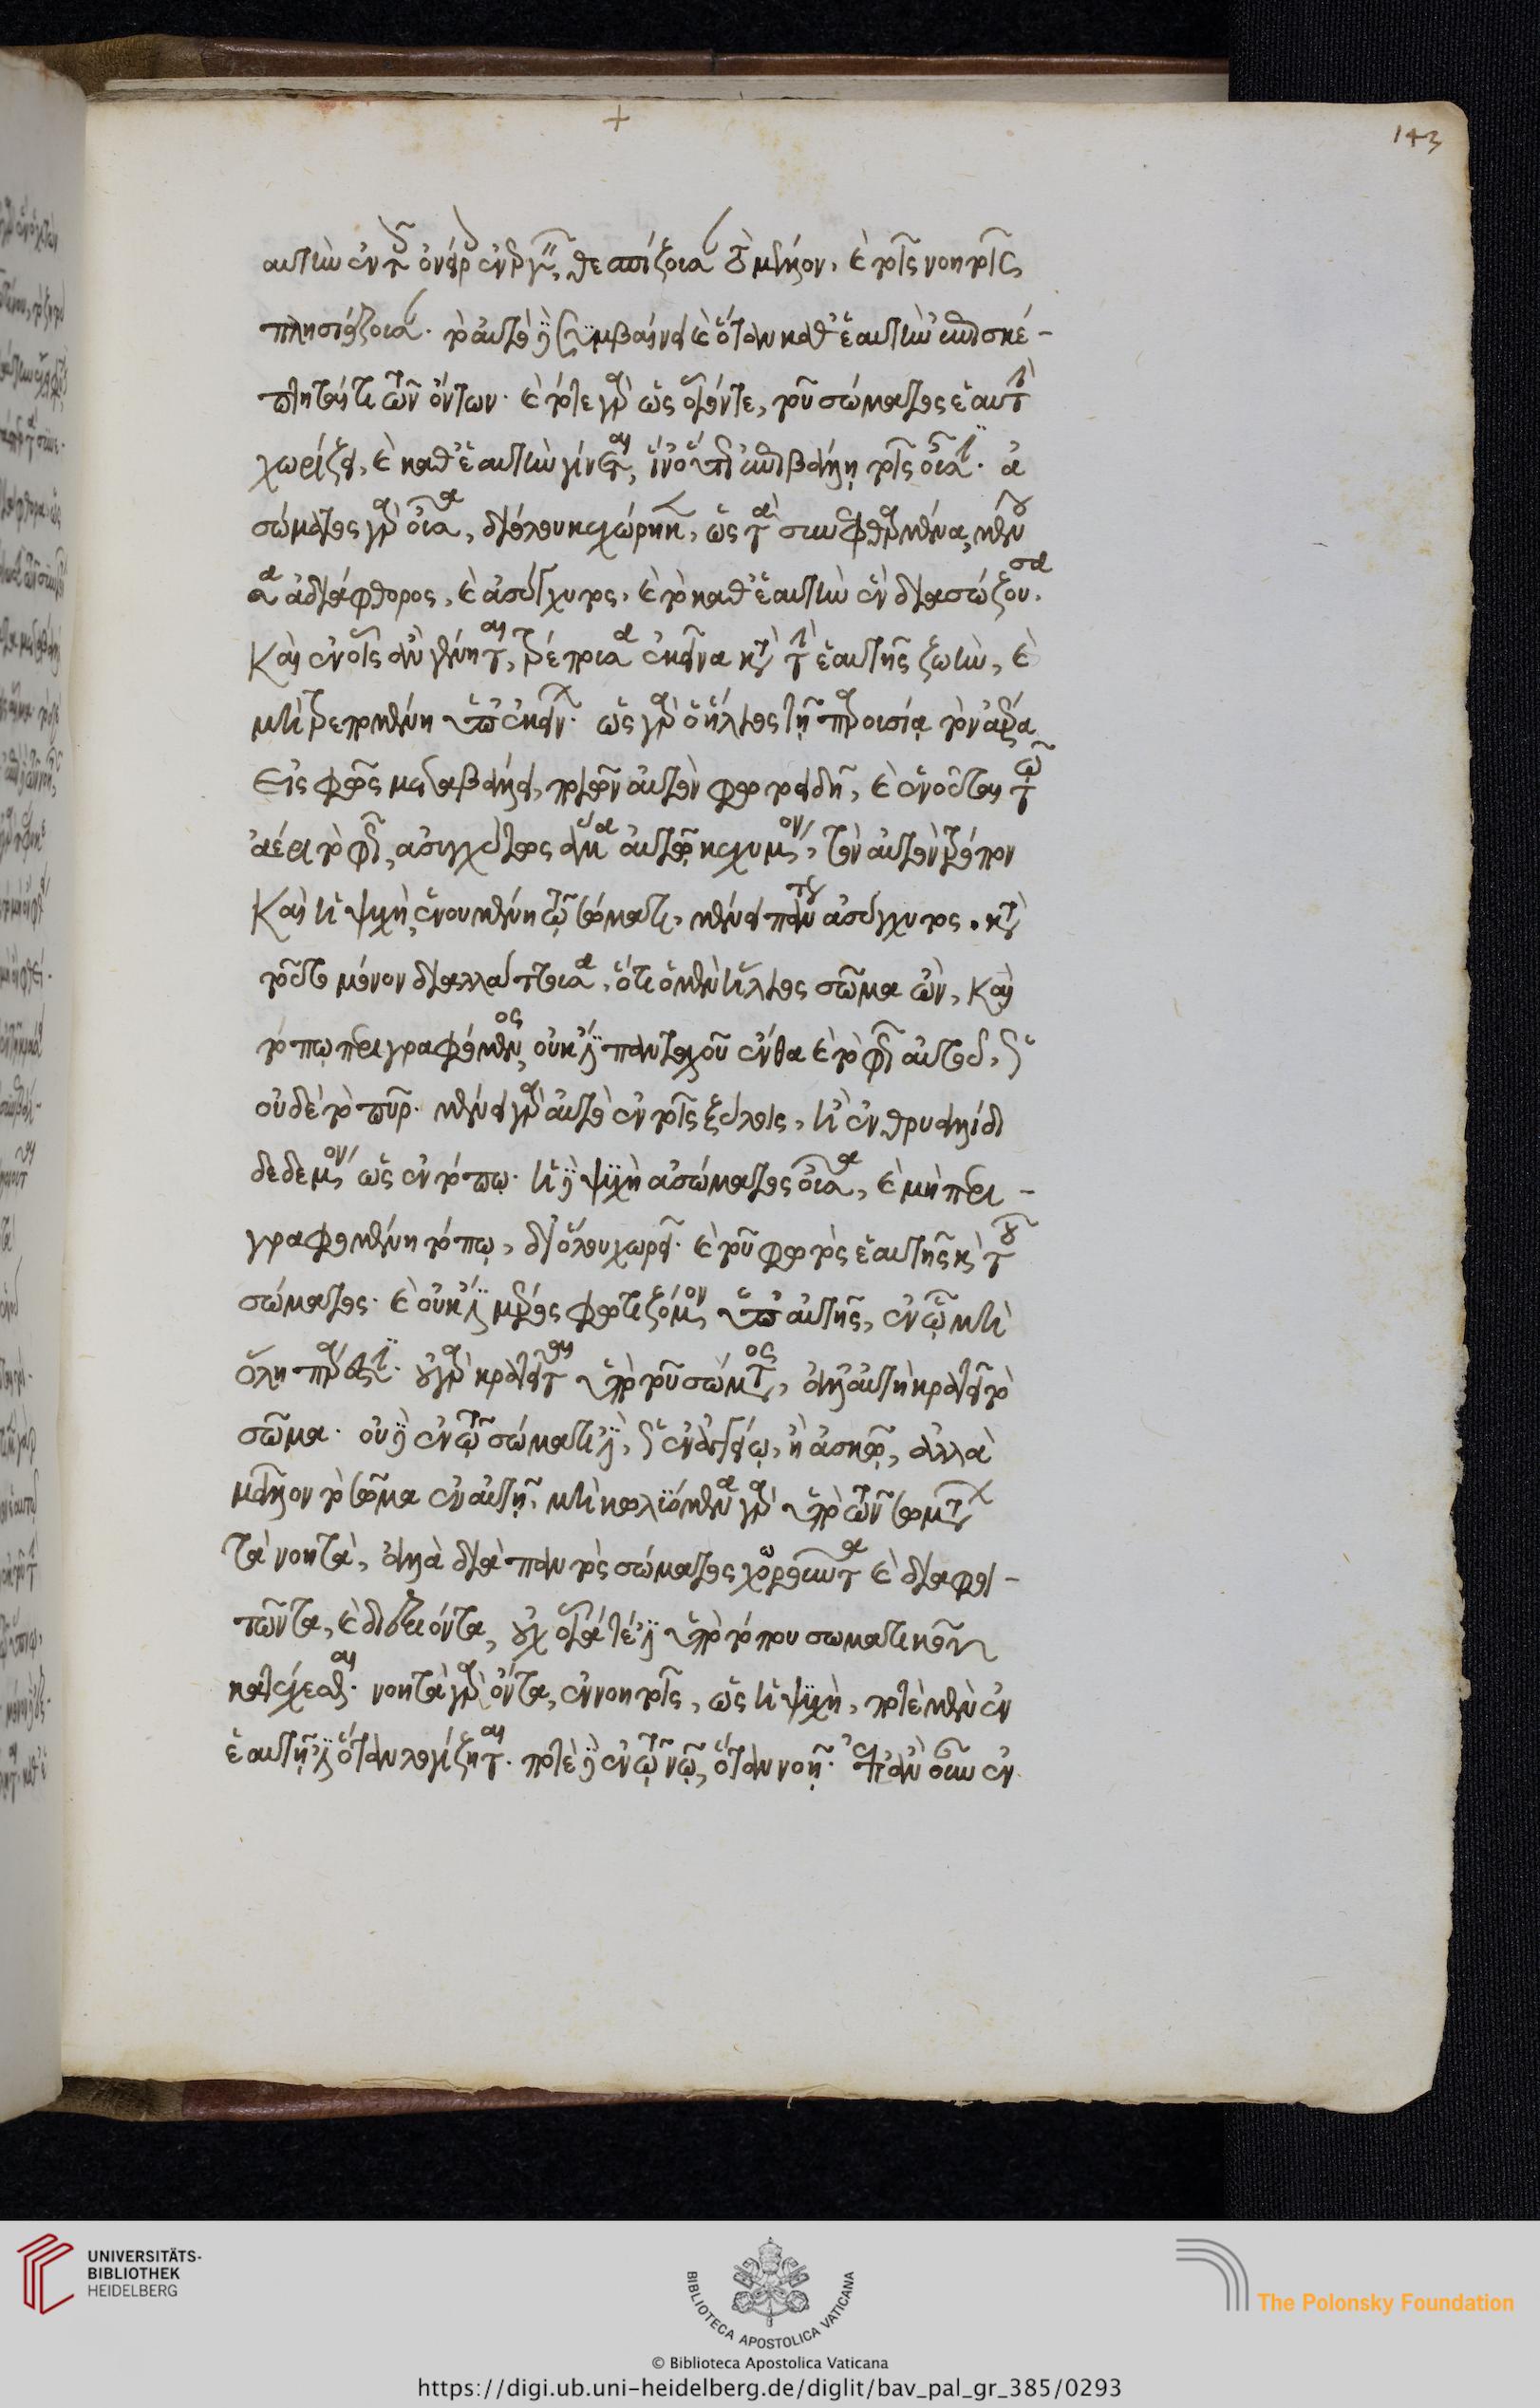 αὐτὴν ἐν τοῖς ὀνείροις ἐνεργεῖν, θεσπίζουσαν τὸ μέλλον, καὶ τοῖς νοητοῖς
πλησιάζουσαν. τὸ αὐτὸ δὲ συμβαίνει καὶ ὅταν καθ' ἑαυτὴν ἐπισκέ-
πτηταί τι τῶν ὄντων. καὶ τότε γὰρ ὡς οἷόν τε, τοῦ σώματος ἑαυτὴν
χωρίζει, καὶ καθ' ἑαυτὴν γίνεται, ἵν' οὕτως ἐπιβάλῃ τοῖς οὖσιν. ἀ
σώματος γὰρ οὖσα, δι' ὅλου κεχώρηκεν, ὡς τὰ συνεφθαρμένα, μένου
σα ἀδιάφθορος, καὶ ἀσύγχυτος, καὶ τὸ καθ' ἑαυτὴν ἓν διασώζουσα.
Καὶ ἐν οἷς ἂν γένηται, τρέπουσα ἐκεῖνα κατὰ τὴν ἑαυτῆς ζωὴν, καὶ
μὴ τρεπομένη ὑπ' ἐκείνων. ὡς γὰρ ὁ ἥλιος τῇ παρουσίᾳ τὸν ἀέρα
εἰς φῶς μεταβάλλει, ποιῶν αὐτὸν φωτοειδῆ, καὶ ἑνοῦται τῷ
ἀέρι τὸ φῶς, ἀσυγχύτως ἅμα αὐτῷ κεχυμένον, τὸν αὐτὸν τρόπον
Καὶ ἡ ψυχὴ, ἑνουμένη τῷ σώματι, μένει πάντως ἀσύγχυτος. κατὰ
τοῦτο μόνον διαλλάττουσα, ὅτι ὁ μὲν ἥλιος σῶμα ὢν, καὶ
τόπῳ περιγραφόμενος, οὐκ ἔστι πανταχοῦ ἔνθα καὶ τὸ φῶς αὐτοῦ, ὡς
οὐδὲ τὸ πῦρ. μένει γὰρ αὐτὸ ἐν τοῖς ξύλοις, ἢ ἐν θρυαλλίδι
δεδεμένον, ὡς ἐν τόπῳ. ἡ δὲ ψυχὴ ἀσώματος οὖσα, καὶ μὴ περι-
γραφομένη τόπῳ, δι' ὅλου χωρεῖ. καὶ τοῦ φωτὸς ἑαυτῆς καὶ τοῦ
σώματος. καὶ οὐκ ἔστι μέρος φωτιζόμενον ὑπ' αὐτῆς, ἐν ᾧ μὴ
ὅλη πάρεστιν. οὐ γὰρ κρατεῖται ὑπὸ τοῦ σώματος, ἀλλ' αὐτὴ κρατεῖ τὸ
σῶμα. οὐδὲ ἐν τῷ σώματί ἐστι, ὡς ἐν ἀγγείῳ, ἢ ἀσκῷ, ἀλλὰ
μᾶλλον τὸ σῶμα ἐν αὐτῇ. μὴ κωλυόμενα γὰρ ὑπὸ τῶν σωμάτων
τὰ νοητὰ, ἀλλὰ διὰ παντὸς σώματος χωροῦντα καὶ διαφοι-
τῶντα, καὶ διεξιόντα, οὐχ οἷά τέ ἐστι ὑπὸ τόπου σωματικοῦ
κατέχεσθαι. νοητὰ γὰρ ὄντα, ἐν νοητοῖς, ὡς ἡ ψυχὴ, ποτὲ μὲν ἐν
ἑαυτῇ ἐστι ὅταν λογίζηται. ποτὲ δὲ ἐν τῷ νῷ, ὅταν νοῇ. ἐπὰν οὖν ἐν
143
UNIVERSITÄTS-
BIBLIOTHEK
HEIDELBERG
BIBLIOTECA APOSTOLICA VATICANA
The Polonsky Foundation
© Biblioteca Apostolica Vaticana
https://digi.ub.uni-heidelberg.de/diglit/bav_pal_gr_385/0293